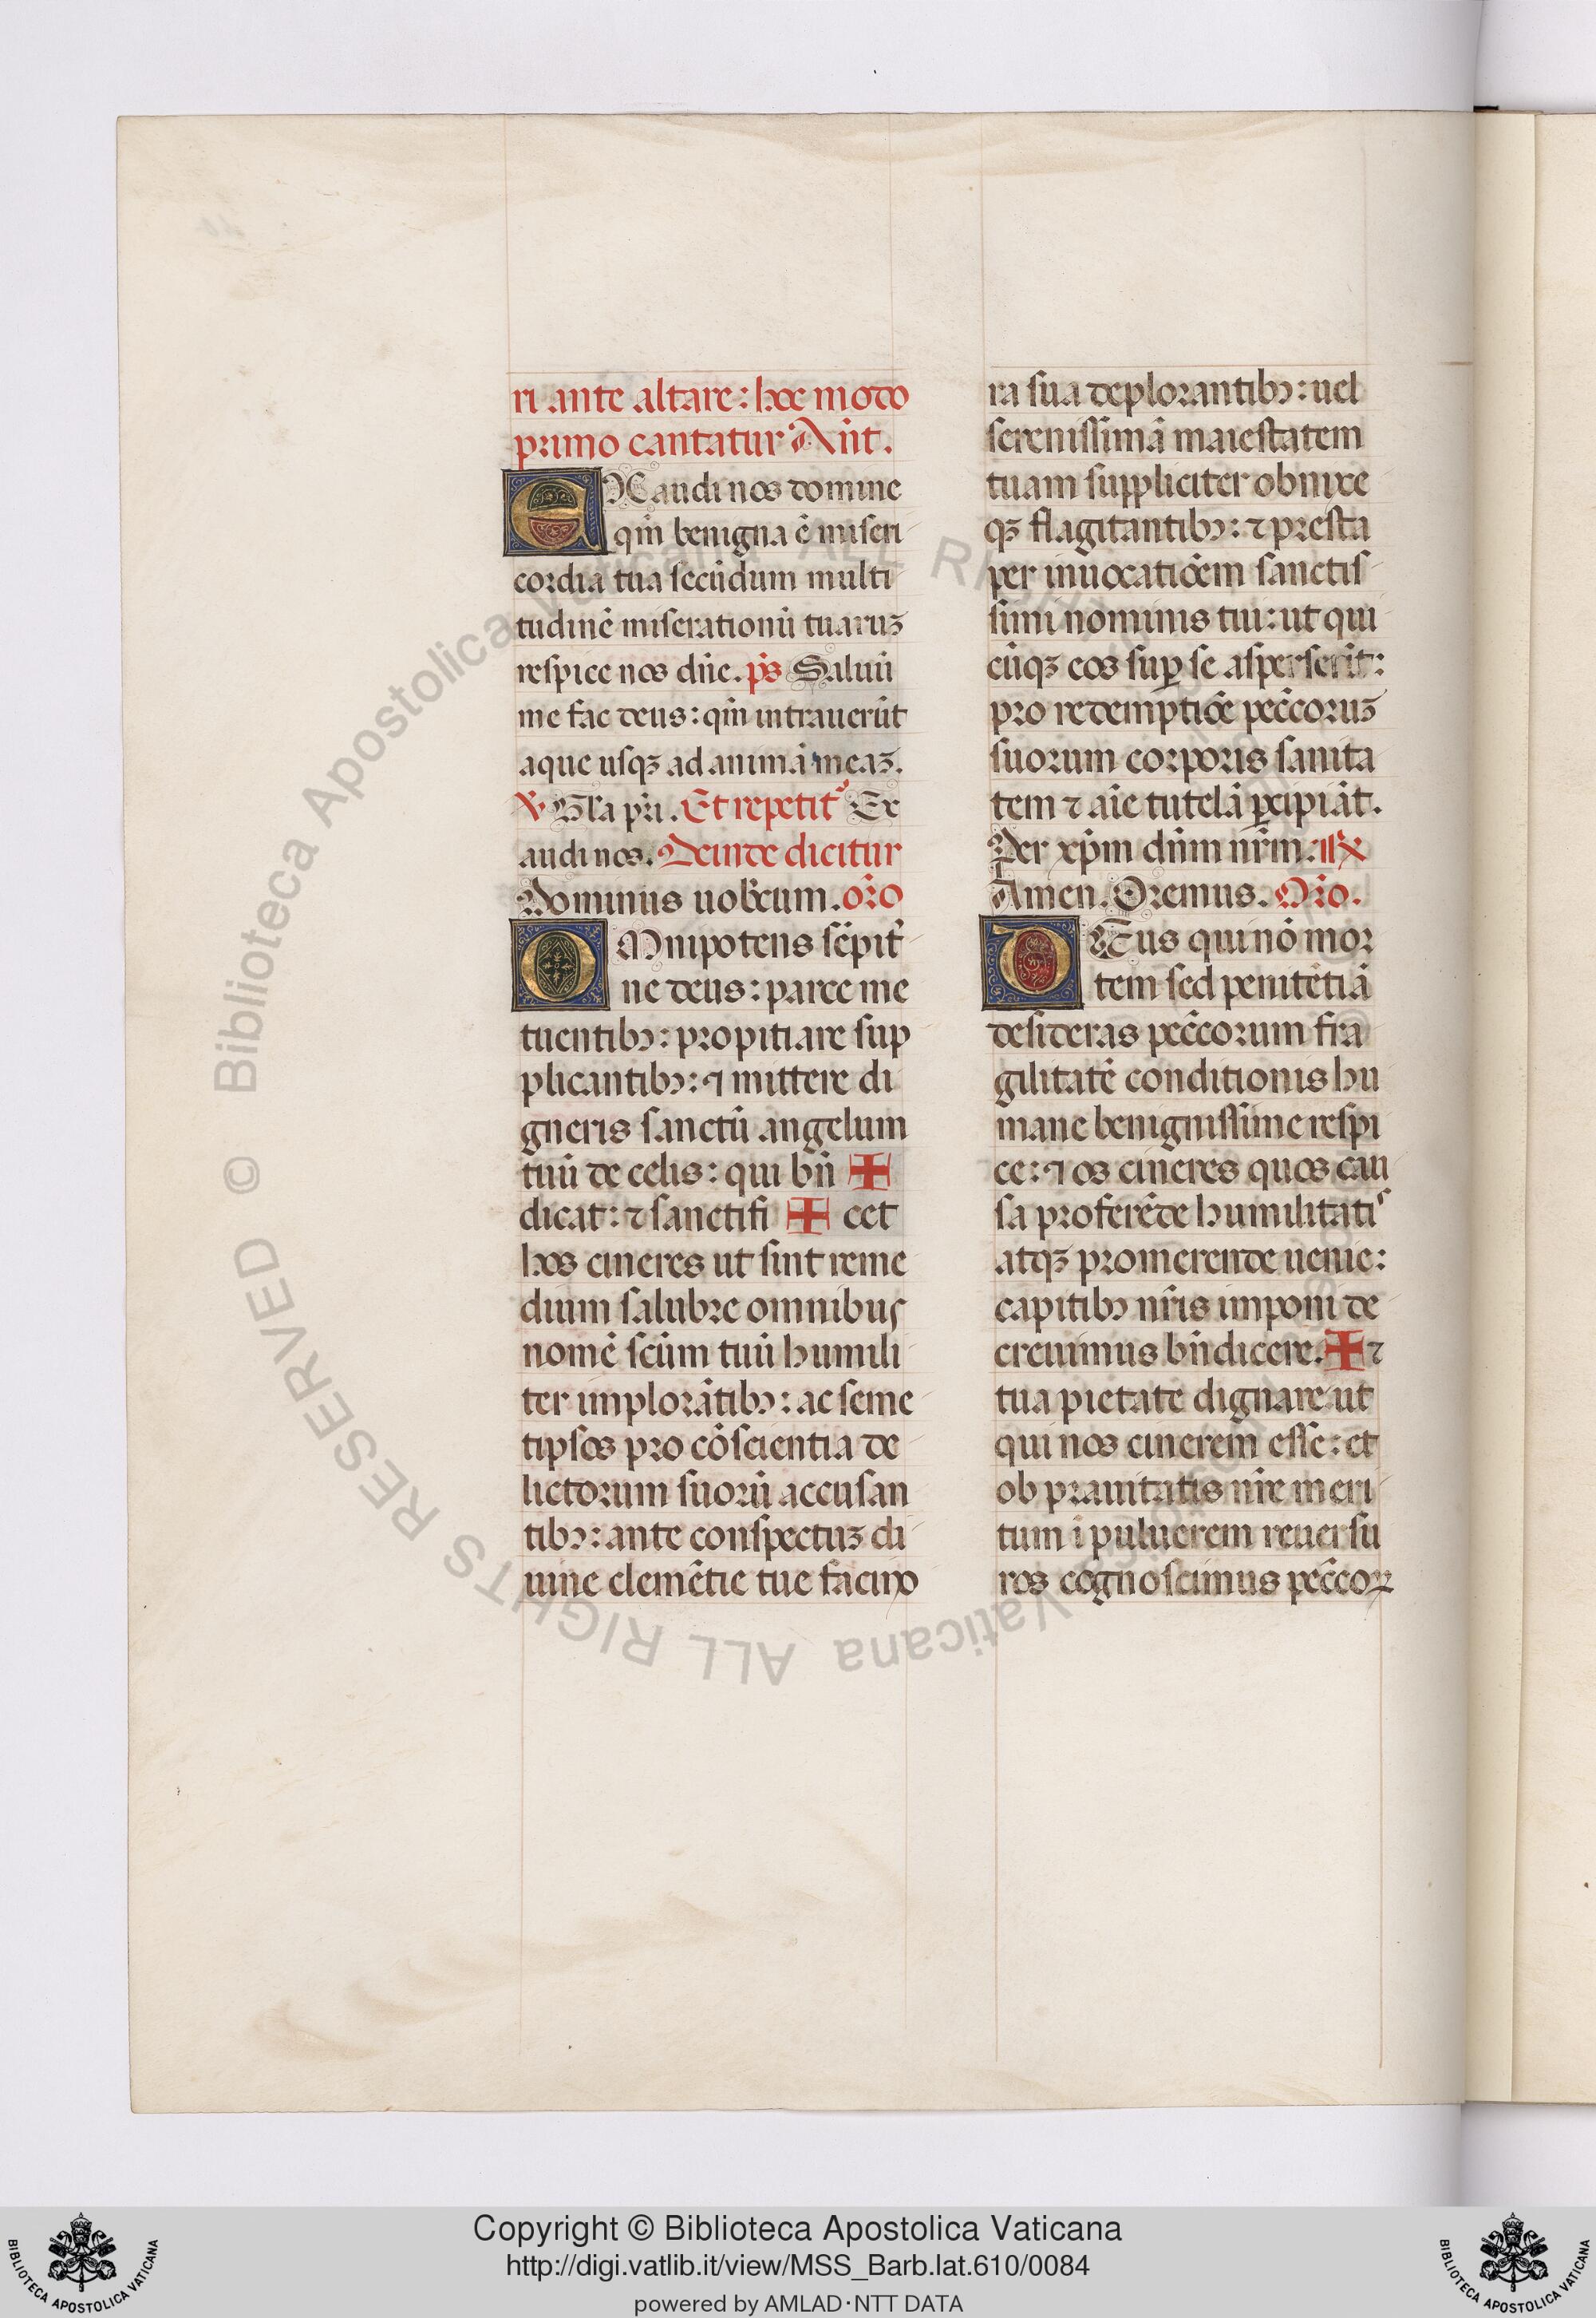 ri ante altare: hoc modo
primo cantatur Añt.
EXaudi nos domine
qm̄ benigna ē miseri
cordia tua secūdum multi
tudinē miserationū tuaruꝫ
respice nos dn̄e. ps̄ Saluū
me fac deus: qm̄ intrauerūt
aque usqꝫ ad animā meaꝫ.
℣ Gl̄a pr̄i. Et repetit᷑ Ex
audi nos. Deinde dicitur
Dominus uobiscum. or̄o
OMnipotens sēpit̄
ne deus: parce me
tuentibꝰ: propitiare sup
plicantibꝰ: ⁊ mittere di
gneris sanctū angelum
tuū de celis: qui bn̄ ✠
dicat: ⁊ sanctifi ✠ cet
hos cineres ut sint reme
dium salubre omnibus
nomē scūm tuū humili
ter implorātibꝰ: ac seme
tipsos pro cōscientia de
lictorum suorū accusan
tibꝰ: ante conspectuꝫ di
uine clemētie tue facino
ra sua deplorantibꝰ: uel
serenissimā maiestatem
tuam suppliciter obnixe
qꝫ flagitantibꝰ: ⁊ presta
per inuocatiōem sanctis
simi nominis tui: ut qui
cūqꝫ eos suꝑ se asperserīt:
pro redemptiōe pec̄coruꝫ
suorum corporis sanita
tem ⁊ aīe tutelā ꝑcipiāt.
Per xp̄m dn̄m nr̄m. ℟
Amen. Oremus. Or̄o.
DEus qui nō mor
tem sed penitētiā
desideras pec̄corum fra
gilitatē conditionis hu
mane benignissime respi
ce: ⁊ os cineres quos cau
sa proferēde humilitatis
atqꝫ promerende uenie:
capitibꝰ nr̄is imponi de
creuimus bn̄dicere. ✠ ⁊
tua pietate dignare ut
qui nos cinerem esse: et
ob prauitatis nr̄e meri
tum ī puluerem reuersu
ros cognoscimus pec̄coꝝ
© Biblioteca Apostolica Vaticana ALL RIGHTS RESERVED
Copyright © Biblioteca Apostolica Vaticana
http://digi.vatlib.it/view/MSS_Barb.lat.610/0084
powered by AMLAD·NTT DATA
BIBLIOTECA APOSTOLICA VATICANA
BIBLIOTECA APOSTOLICA VATICANA